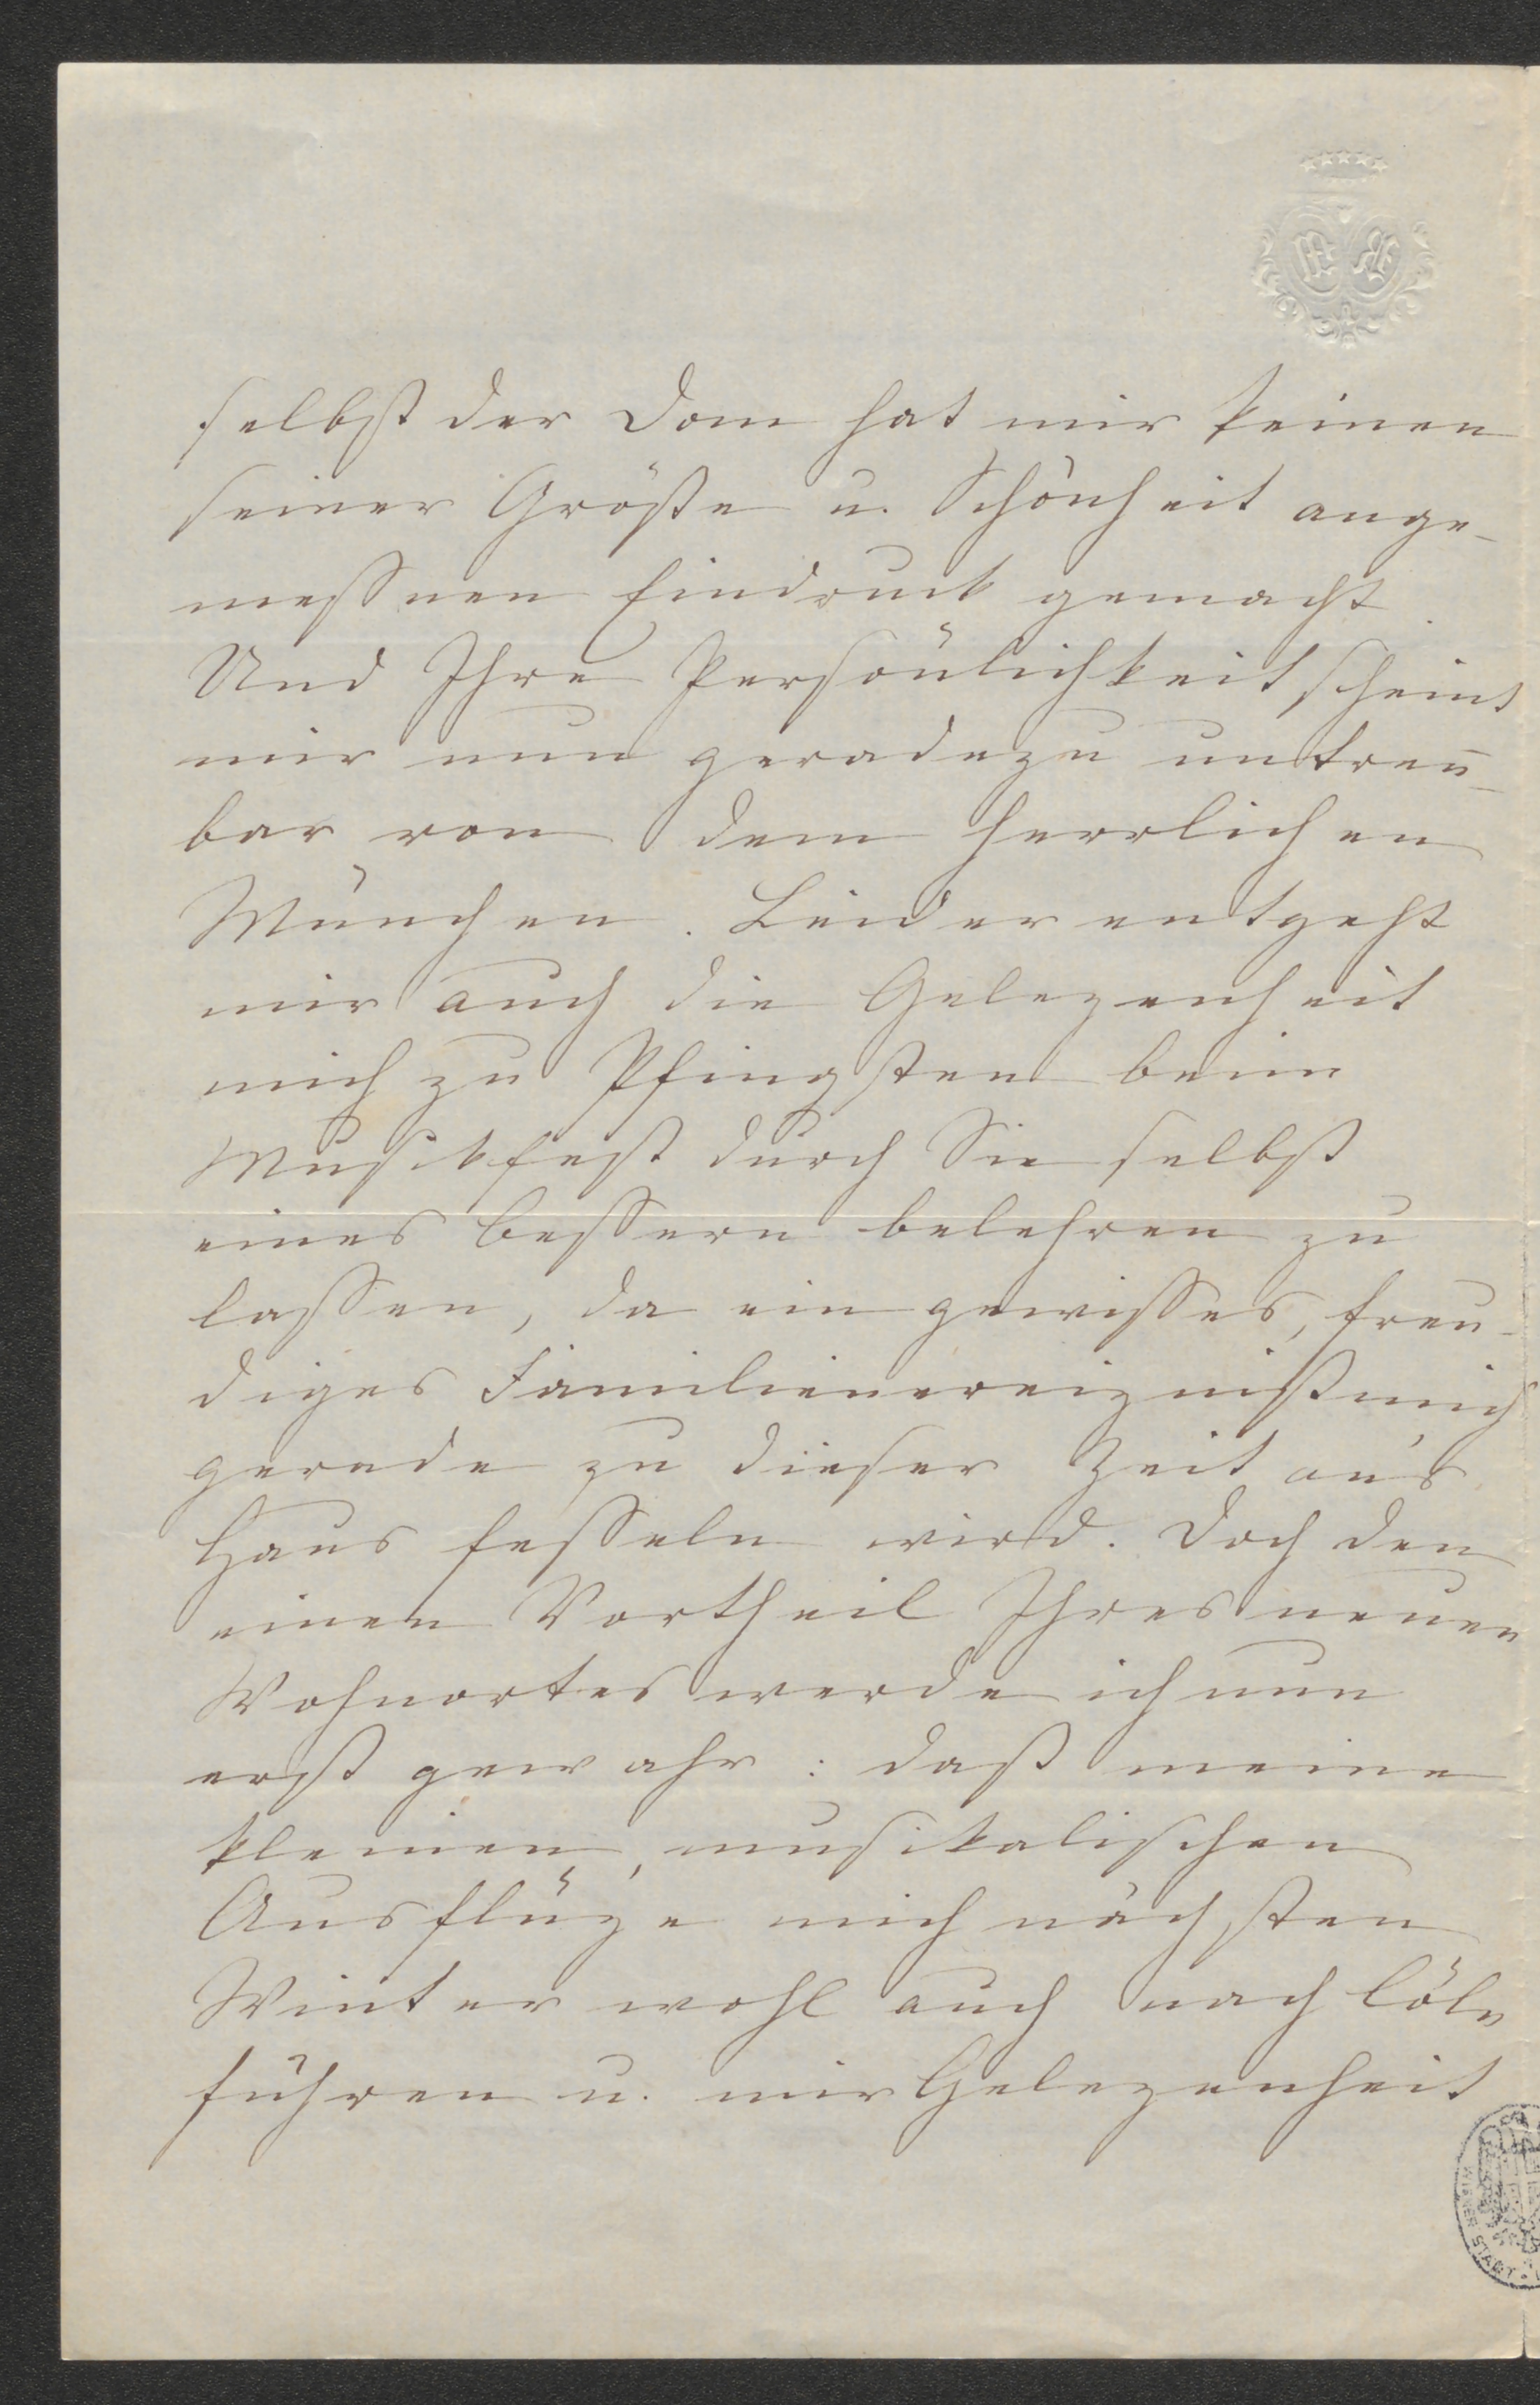 selbst der Dom hat mir keinen
seiner Größe u. Schönheit ange-
meßnen Eindruck gemacht.
Und Ihre Persönlichkeit scheint
mir nun geradezu untren̄-
bar von dem herrlichen
München. Leider entgeht
mir auch die Gelegenheit
mich zu Pfingsten beim
Musikfest durch Sie selbst
eines bessern belehren zu
lassen, da ein gewisses, freu-
diges Familienereigniß mich
gerade zu dieser Zeit an's
Haus fesseln wird. Doch den
einen Vortheil Ihres neuen
Wohnortes werde ich nun
erst gewahr: daß meine
kleinen, musikalischen
Ausflüge mich nächsten
Winter wohl auch nach Cöln
führen u. mir Gelegenheit